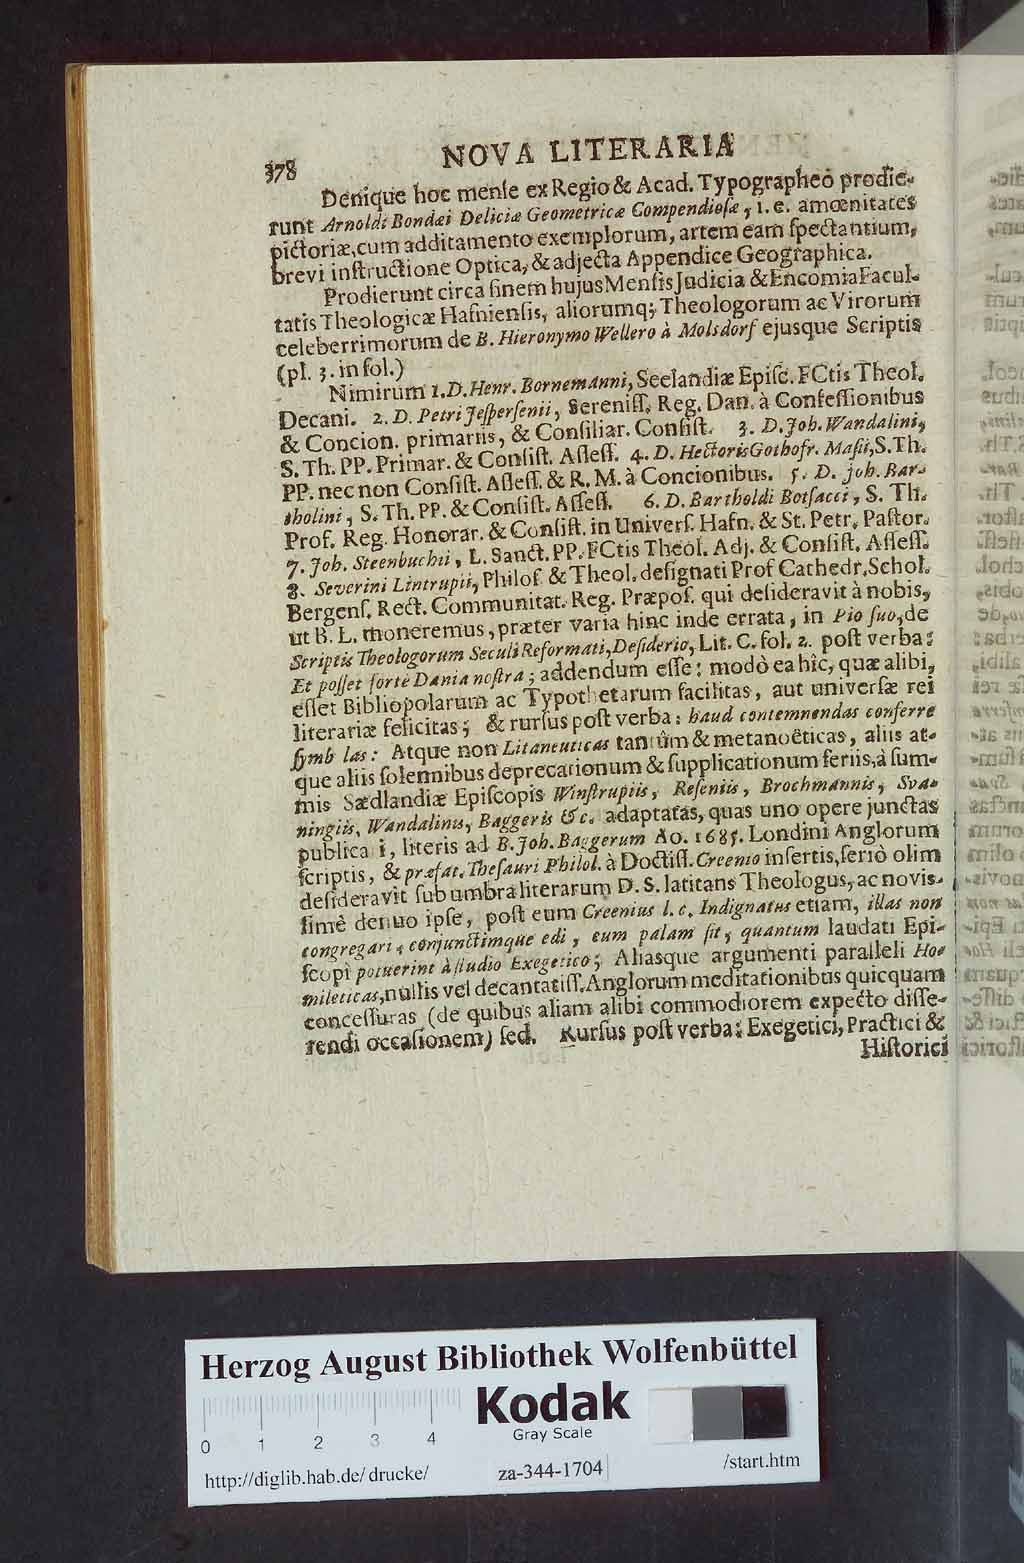 378 NOVA LITERARIA
Denique hoc menſe ex Regio & Acad. Typographeo prodie-
runt Arnoldi Bondæi Deliciæ Geometricæ Compendioſæ, i. e. amœnitates
pictoriæ, cum additamento exemplorum, artem eam ſpectantium,
brevi inſtructione Optica, & adjecta Appendice Geographica.
Prodierunt circa finem hujus Menſis Judicia & Encomia Facul-
tatis Theologicæ Hafnienſis, aliorumq; Theologorum ac Virorum
celeberrimorum de B. Hieronymo Wellero à Molsdorf ejusque Scriptis
(pl. 3. in fol.)
Nimirum 1. D. Henr. Bornemanni, Seelandiæ Epiſc. FCtis Theol.
Decani. 2. D. Petri Jeſperſenii, Sereniſſ. Reg. Dan. à Confeſſionibus
& Concion. primariis, & Conſiliar. Conſiſt. 3. D. Joh. Wandalini,
S. Th. PP. Primar. & Conſiſt. Aſſeſſ. 4. D. Hectoris Gothofr. Maſii, S. Th.
PP. nec non Conſiſt. Aſſeſſ. & R. M. à Concionibus. 5. D. Joh. Bar-
tholini, S. Th. PP. & Conſiſt. Aſſeſſ. 6. D. Bartholdi Botſacci, S. Th.
Prof. Reg. Honorar. & Conſiſt. in Univerſ. Hafn. & St. Petr. Paſtor.
7. Joh. Steenbuchii, L. Sanct. PP. FCtis Theol. Adj. & Conſiſt. Aſſeſſ.
8. Severini Lintrupii, Philoſ. & Theol. deſignati Prof Cathedr. Schol.
Bergenſ. Rect. Communitat. Reg. Præpoſ. qui deſideravit à nobis,
ut B. L. moneremus, præter varia hinc inde errata, in Pio ſuo, de
Scriptis Theologorum Seculi Reformati, Deſiderio, Lit. C. fol. 2. poſt verba:
Et poſſet forte Dania noſtra; addendum eſſe: modò ea hîc, quæ alibi,
eſſet Bibliopolarum ac Typothetarum facilitas, aut univerſæ rei
literariæ felicitas; & rurſus poſt verba: haud contemnendas conferre
ſymb las: Atque non Litaneuticas tantùm & metanoêticas, aliis at-
que aliis ſolennibus deprecationum & ſupplicationum feriis, à ſum-
mis Sædlandiæ Epiſcopis Winſtrupiis, Reſeniis, Brochmannis, Sva-
ningiis, Wandalinis, Baggeris &c. adaptatas, quas uno opere junctas
publica i, literis ad B. Joh. Baggerum Ao. 1685. Londini Anglorum
ſcriptis, & præfat. Theſauri Philol. à Doctiſſ. Creenio inſertis, ſeriò olim
deſideravit ſub umbra literarum D. S. latitans Theologus, ac novis-
ſimè denuo ipſe, poſt eum Creenius l. c. Indignatus etiam, illas non
congregari, conjunctimque edi, cum palam ſit, quantum laudati Epi-
ſcopi potuerint à ſtudio Exegetico; Aliasque argumenti paralleli Ho-
mileticas, nullis vel decantatiſſ. Anglorum meditationibus quicquam
conceſſuras (de quibus aliam alibi commodiorem expecto diſſe-
rendi occaſionem) ſed. Rurſus poſt verba: Exegetici, Practici &
Hiſtorici
Herzog August Bibliothek Wolfenbüttel
Kodak
Gray Scale
0 1 2 3 4
http://diglib.hab.de/drucke/ za-344-1704 /start.htm